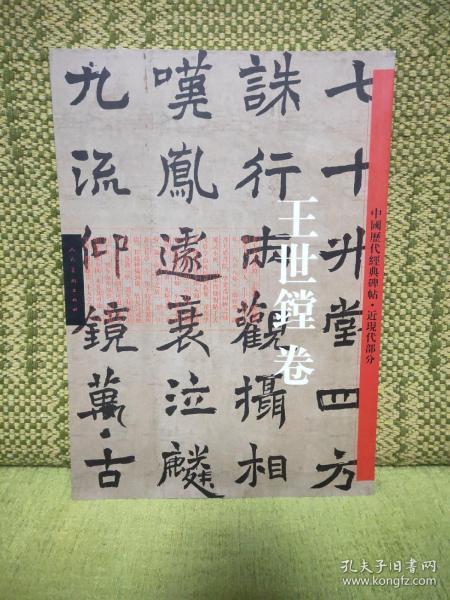 七十升堂四方
誅行兩觀攝相
嘆鳳遽衰泣麟
九流仰鏡萬古
王世鏜卷
中國歷代經典碑帖·近現代部分
孔夫子旧书网
www.kongfz.com